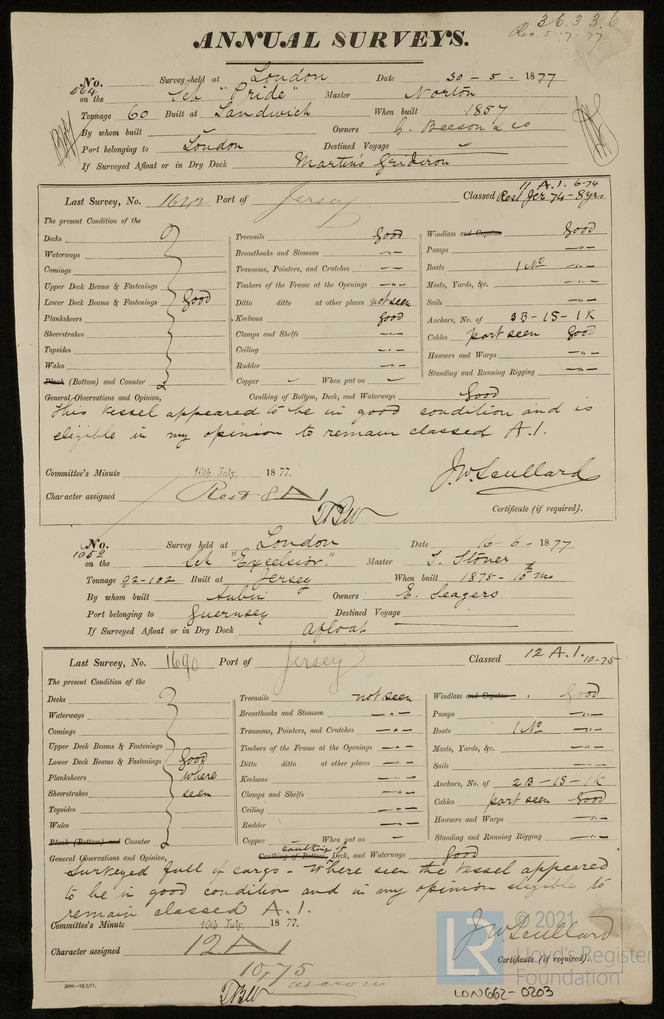 36336
Rec 5.7.77
ANNUAL SURVEYS.
No. 564 Survey held at London Date 30 - 5 - 1877
on the Sch "Pride" Master Norton
Tonnage 60 Built at Sandwich When built 1857
By whom built Owners G. Beeson & Co
Port belonging to London Destined Voyage
If Surveyed Afloat or in Dry Dock Martin's Gridiron
Last Survey, No. 1642 Port of Jersey Classed 11 A.1. 6-74
Rest Jer 74 - 8yrs
The present Condition of the
Decks
Waterways
Comings
Upper Deck Beams & Fastenings
Lower Deck Beams & Fastenings Good
Planksheers
Sheerstrakes
Topsides
Wales
Plank (Bottom) and Counter
Treenails Good
Breasthooks and Stemson -"-
Transoms, Pointers, and Crutches -"-
Timbers of the Frame at the Openings -"-
Ditto ditto at other places not seen
Keelsons Good
Clamps and Shelfs -"-
Ceiling -"-
Rudder -"-
Copper When put on
Windlass and Capstan Good
Pumps -"-
Boats 1 No -"-
Masts, Yards, &c. -"-
Sails -"-
Anchors, No. of 3B - 1S - 1K
Cables part seen Good
Hawsers and Warps -"-
Standing and Running Rigging -"-
General Observations and Opinion, Caulking of Bottom, Deck, and Waterways Good
This vessel appeared to be in good condition and is
eligible in my opinion to remain classed A.1.
J.W. Scullard
Committee's Minute 10th July, 1877.
Character assigned Rest 8 A1
Certificate (if required).
No. 1052 Survey held at London Date 16 - 6 - 1877
on the Sch "Excelsior" Master T. Stoner
Tonnage 92-102 Built at Jersey When built 1875 - 10th mo
By whom built Aubin Owners E. Seagers
Port belonging to Guernsey Destined Voyage
If Surveyed Afloat or in Dry Dock Afloat
Last Survey, No. 1690 Port of Jersey Classed 12 A.1. 10-75
The present Condition of the
Decks
Waterways
Comings
Upper Deck Beams & Fastenings
Lower Deck Beams & Fastenings Good
Planksheers where
Sheerstrakes seen
Topsides
Wales
Plank (Bottom) and Counter
Treenails not seen
Breasthooks and Stemson -"-
Transoms, Pointers, and Crutches -"-
Timbers of the Frame at the Openings -"-
Ditto ditto at other places -"-
Keelsons -"-
Clamps and Shelfs -"-
Ceiling -"-
Rudder -"-
Copper When put on
Windlass and Capstan Good
Pumps -"-
Boats 1 No -"-
Masts, Yards, &c. -"-
Sails -"-
Anchors, No. of 2B - 1S - 1K
Cables part seen Good
Hawsers and Warps -"-
Standing and Running Rigging -"-
caulking of
General Observations and Opinion, Caulking of Bottom, Deck, and Waterways Good
Surveyed full of cargo - Where seen the vessel appeared
to be in good condition and in my opinion eligible to
remain classed A.1.
J.W. Scullard
Committee's Minute 10th July, 1877.
Character assigned 12 A1
10,75
Certificate (if required).
2000-13/2/71.
LON662-0203
© 2021
LR
Lloyd's Register
Foundation